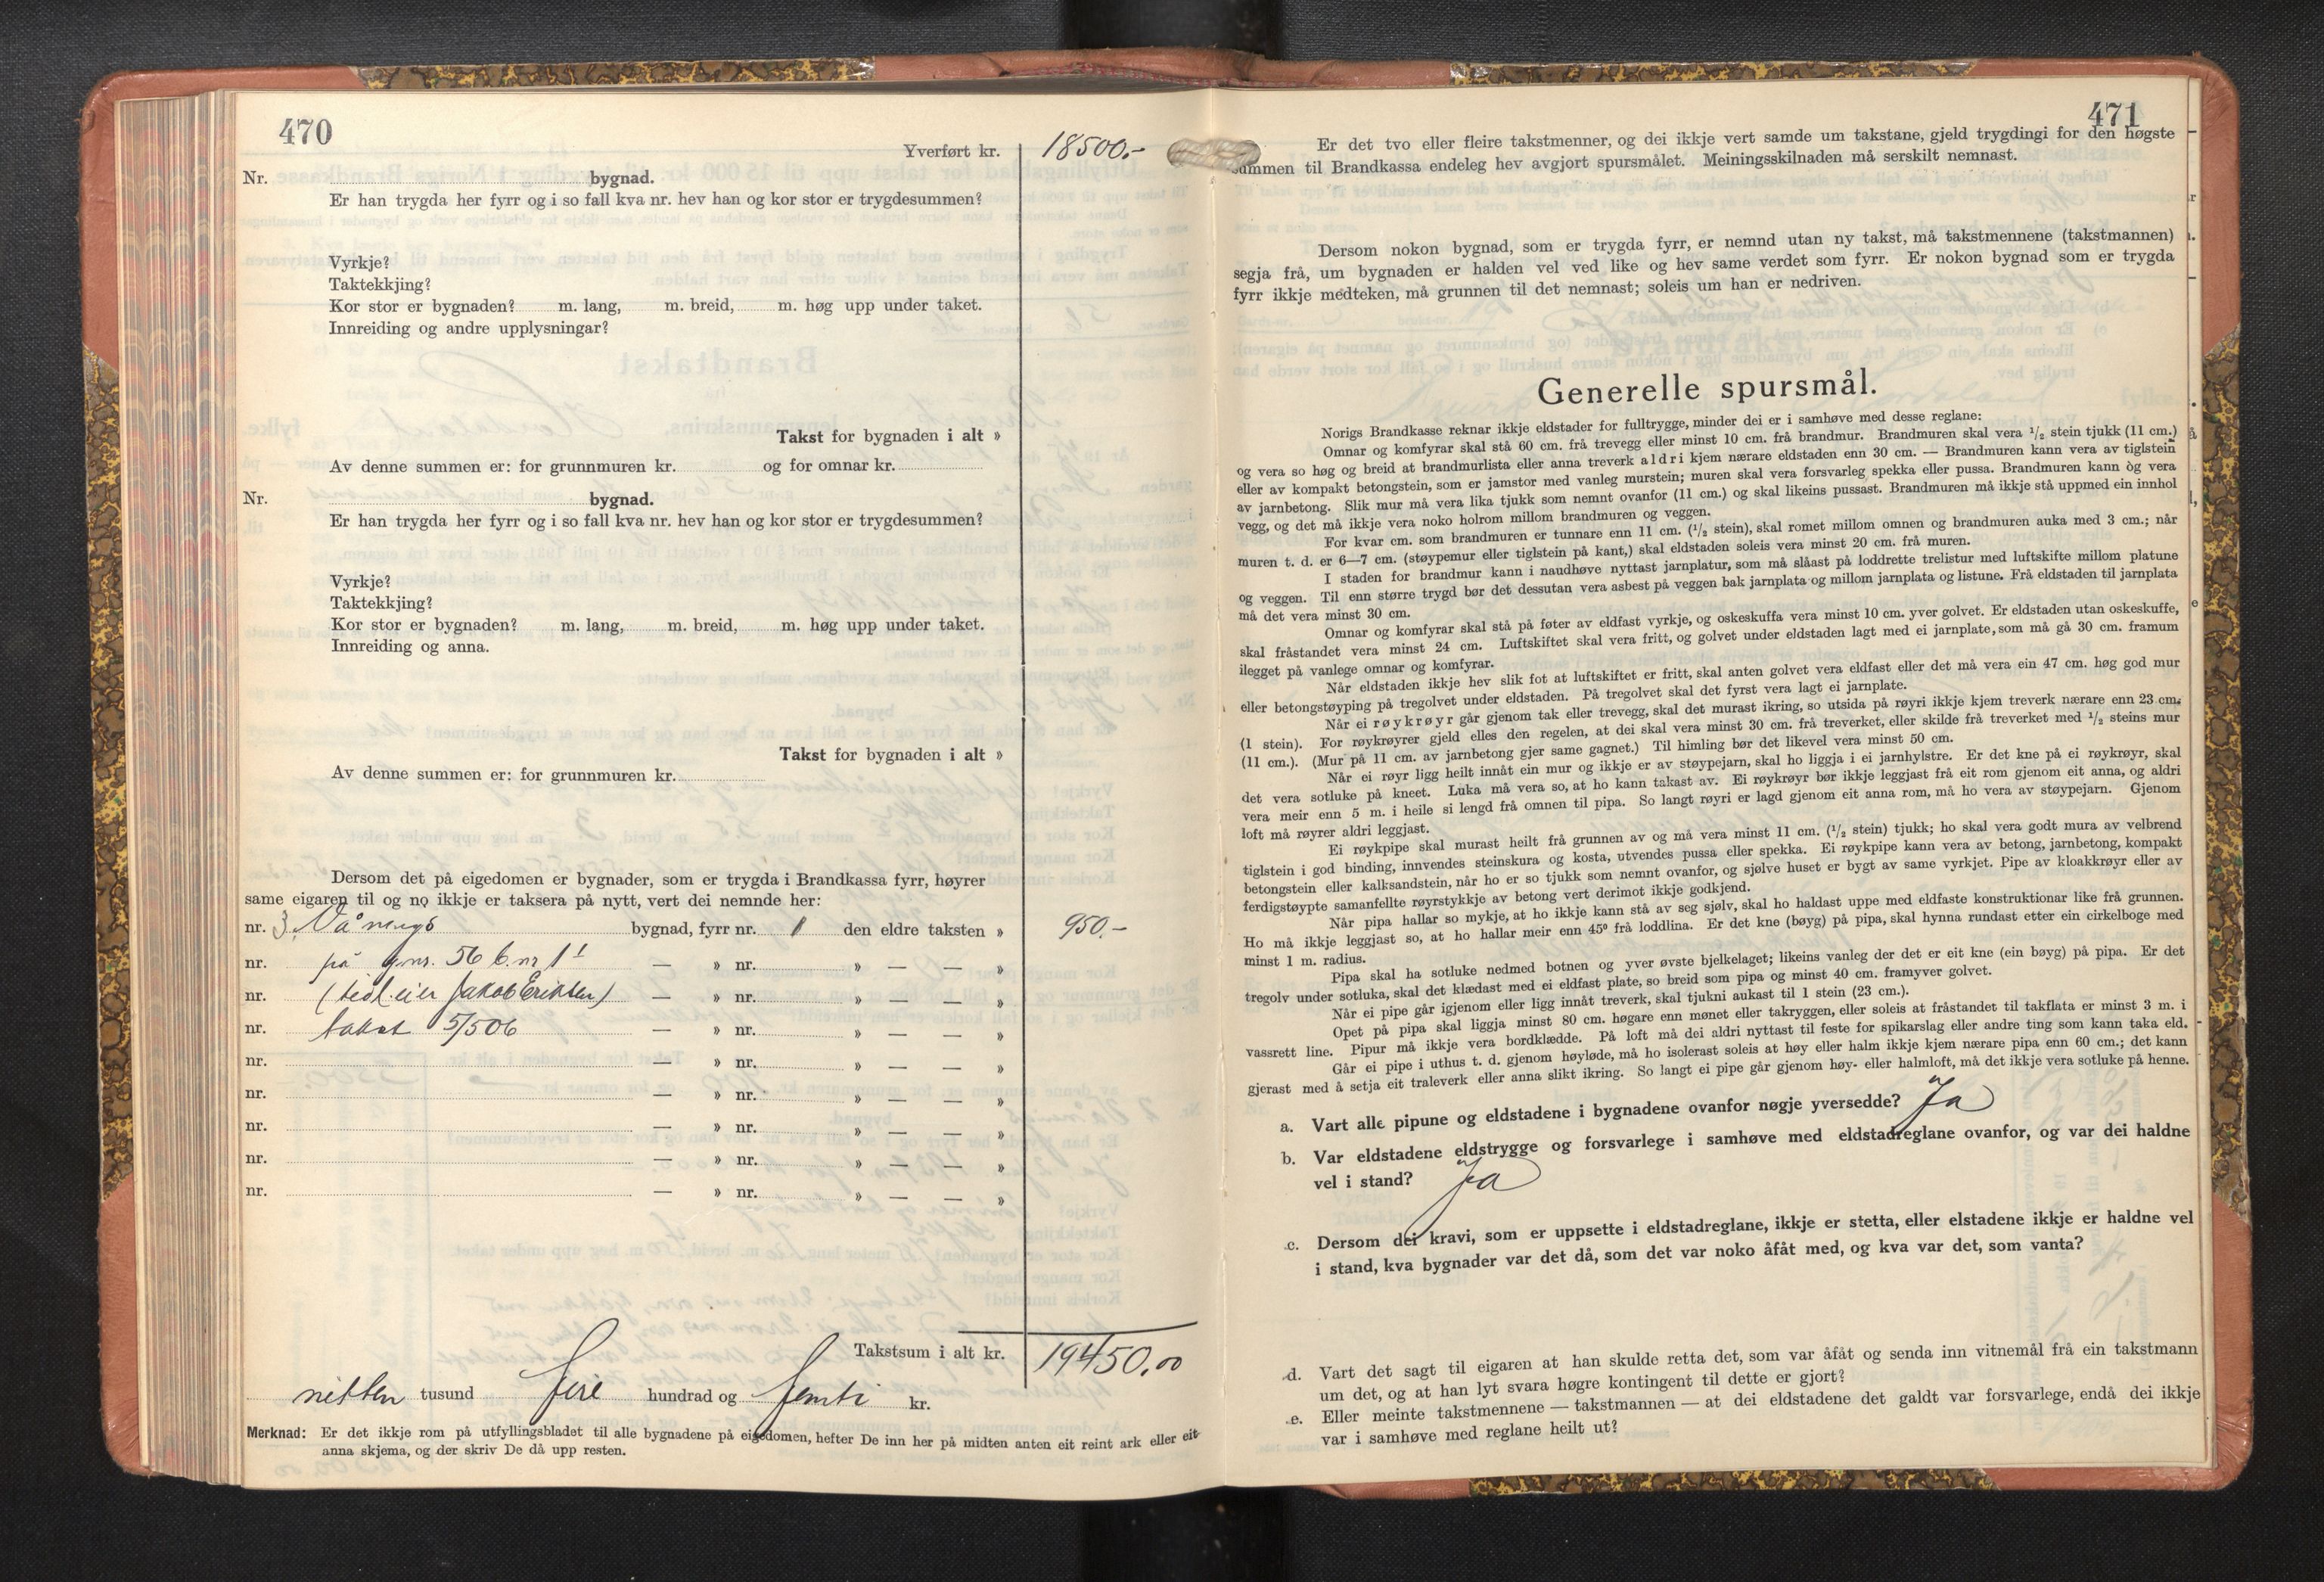 470
Yverført kr. 18500.-
Nr. bygnad.
Er han trygda her fyrr og i so fall kva nr. hev han og kor stor er trygdesummen?
Vyrkje?
Taktekkjing?
Kor stor er bygnaden? m. lang, m. breid, m. høg upp under taket.
Innreiding og andre upplysningar?
Takst for bygnaden i alt »
Av denne summen er: for grunnmuren kr. og for omnar kr.
Nr. bygnad.
Er han trygda her fyrr og i so fall kva nr. hev han og kor stor er trygdesummen?
Vyrkje?
Taktekkjing?
Kor stor er bygnaden? m. lang, m. breid, m. høg upp under taket.
Innreiding og anna.
Takst for bygnaden i alt »
Av denne summen er: for grunnmuren kr.
Dersom det på eigedomen er bygnader, som er trygda i Brandkassa fyrr, høyrer
same eigaren til og no ikkje er taksera på nytt, vert dei nemnde her:
nr. 3 Vånings bygnad, fyrr nr. 1 den eldre taksten » 950.-
nr. på g.nr. 56 b.nr 11 — » nr. » — — »
nr. (tidl. eier Jakob Eriksen) — » nr. » — — »
nr. takst 5/506 — » nr. » — — »
nr. — » nr. » — — »
nr. — » nr. » — — »
nr. — » nr. » — — »
nr. — » nr. » — — »
nr. — » nr. » — — »
Takstsum i alt kr. 19450.00
nitten tusund fire hundrad og femti kr.
Merknad: Er det ikkje rom på utfyllingsbladet til alle bygnadene på eigedomen, hefter De inn her på midten anten eit reint ark eller eit
anna skjema, og der skriv De då upp resten.
471
Er det tvo eller fleire takstmenner, og dei ikkje vert samde um takstane, gjeld trygdingi for den høgste
summen til Brandkassa endeleg hev avgjort spursmålet. Meiningsskilnaden må serskilt nemnast.
Dersom nokon bygnad, som er trygda fyrr, er nemnd utan ny takst, må takstmennene (takstmannen)
segja frå, um bygnaden er halden vel ved like og hev same verdet som fyrr. Er nokon bygnad som er trygda
fyrr ikkje medteken, må grunnen til det nemnast; soleis um han er nedriven.
Generelle spursmål.
Norigs Brandkasse reknar ikkje eldstader for fulltrygge, minder dei er i samhøve med desse reglane:
Omnar og komfyrar skal stå 60 cm. frå trevegg eller minst 10 cm. frå brandmur. Brandmuren skal vera 1/2 stein tjukk (11 cm.)
og vera so høg og breid at brandmurlista eller anna treverk aldri kjem nærare eldstaden enn 30 cm. — Brandmuren kann vera av tiglstein
eller av kompakt betongstein, som er jamstor med vanleg murstein; muren skal vera forsvarleg spekka eller pussa. Brandmuren kann òg vera
av jarnbetong. Slik mur må vera lika tjukk som nemnt ovanfor (11 cm.) og skal likeins pussast. Brandmuren må ikkje stå uppmed ein innhol
vegg, og det må ikkje vera noko holrom millom brandmuren og veggen.
For kvar cm. som brandmuren er tunnare enn 11 cm. (1/2 stein), skal romet millom omnen og brandmuren auka med 3 cm.; når
muren t. d. er 6—7 cm. (støypemur eller tiglstein på kant,) skal eldstaden soleis vera minst 20 cm. frå muren.
I staden for brandmur kann i naudhøve nyttast jarnplatur, som må slåast på loddrette trelistur med luftskifte millom platune
og veggen. Til enn større trygd bør det dessutan vera asbest på veggen bak jarnplata og millom jarnplata og listune. Frå eldstaden til jarnplata
må det vera minst 30 cm.
Omnar og komfyrar skal stå på føter av eldfast vyrkje, og oskeskuffa vera minst 10 cm. yver golvet. Er eldstaden utan oskeskuffe,
skal fråstandet vera minst 24 cm. Luftskiftet skal vera fritt, og golvet under eldstaden lagt med ei jarnplate, som må gå 30 cm. framum
ilegget på vanlege omnar og komfyrar.
Når eldstaden ikkje hev slik fot at luftskiftet er fritt, skal anten golvet vera eldfast eller det må vera ein 47 cm. høg god mur
eller betongstøyping på tregolvet under eldstaden. På tregolvet skal det fyrst vera lagt ei jarnplate.
Når ei røykrøyr går gjenom tak eller trevegg, skal det murast ikring, so utsida på røyri ikkje kjem treverk nærare enn 23 cm.
(1 stein). For røykrøyrer gjeld elles den regelen, at dei skal vera minst 30 cm. frå treverket, eller skilde frå treverket med 1/2 steins mur
(11 cm.). (Mur på 11 cm. av jarnbetong gjer same gagnet.) Til himling bør det likevel vera minst 50 cm.
Når ei røyr ligg heilt innåt ein mur og ikkje er av støypejarn, skal ho liggja i ei jarnhylstre. Er det kne på ei røykrøyr, skal
det vera sotluke på kneet. Luka må vera so, at ho kann takast av. Ei røykrøyr bør ikkje leggjast frå eit rom gjenom eit anna, og aldri
vera meir enn 5 m. i heile si lengd frå omnen til pipa. So langt røyri er lagd gjenom eit anna rom, må ho vera av støypejarn. Gjenom
loft må røyrer aldri leggjast.
Ei røykpipe skal murast heilt frå grunnen av og må vera minst 11 cm. (1/2 stein) tjukk; ho skal vera godt mura av velbrend
tiglstein i god binding, innvendes steinskura og kosta, utvendes pussa eller spekka. Ei røykpipe kann vera av betong, jarnbetong, kompakt
betongstein eller kalksandstein, når ho er so tjukk som nemnt ovanfor, og sjølve huset er bygt av same vyrkjet. Pipe av kloakkrøyr eller av
ferdigstøypte samanfellte røyrstykkje av betong vert derimot ikkje godkjend.
Når pipa hallar so mykje, at ho ikkje kann stå av seg sjølv, skal ho haldast uppe med eldfaste konstruktionar like frå grunnen.
Ho må ikkje leggjast so, at ho hallar meir enn 45° frå loddlina. Er det kne (bøyg) på pipa, skal hynna rundast etter ein cirkelboge med
minst 1 m. radius.
Pipa skal ha sotluke nedmed botnen og yver øvste bjelkelaget; likeins vanleg der det er eit kne (ein bøyg) på pipa. Er det
tregolv under sotluka, skal det klædast med ei eldfast plate, so breid som pipa og minst 40 cm. framyver golvet.
Når ei pipe går igjenom eller ligg innåt treverk, skal tjukni aukast til 1 stein (23 cm.).
Opet på pipa skal liggja minst 80 cm. høgare enn mønet eller takryggen, eller soleis at fråstandet til takflata er minst 3 m. i
vassrett line. Pipur må ikkje vera bordklædde. På loft må dei aldri nyttast til feste for spikarslag eller andre ting som kann taka eld.
Går ei pipe i uthus t. d. gjenom høyløde, må ho isolerast soleis at høy eller halm ikkje kjem nærare pipa enn 60 cm.; det kann
gjerast med å setja eit traleverk eller anna slikt ikring. So langt ei pipe går gjenom høy- eller halmloft, må det ikkje vera sotluke på henne.
a. Vart alle pipune og eldstadene i bygnadene ovanfor nøgje yversedde? Ja
b. Var eldstadene eldstrygge og forsvarlege i samhøve med eldstadreglane ovanfor, og var dei haldne
vel i stand? Ja
c. Dersom dei kravi, som er uppsette i eldstadreglane, ikkje er stetta, eller elstadene ikkje er haldne vel
i stand, kva bygnader var det då, som det var noko åfåt med, og kva var det, som vanta?
d. Vart det sagt til eigaren at han skulde retta det, som var åfåt og senda inn vitnemål frå ein takstmann
um det, og at han lyt svara høgre kontingent til dette er gjort?
e. Eller meinte takstmennene — takstmannen — at dei eldstadene det galdt var forsvarlege, endå dei ikkje
var i samhøve med reglane heilt ut?